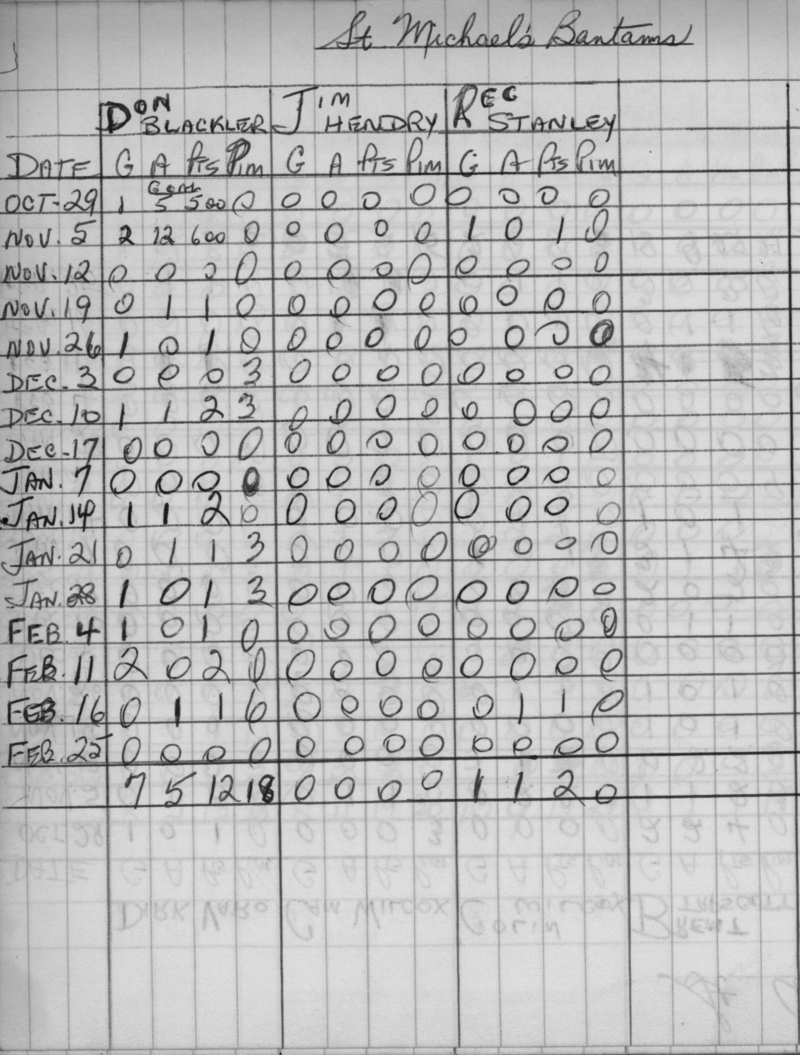 St Michael's Bantams
DON BLACKLER JIM HENDRY REC STANLEY
DATE G A Pts Pim G A Pts Pim G A Pts Pim
OCT-29 1 5 500 0 0 0 0 0 0 0 0 0
NOV. 5 2 12 600 0 0 0 0 0 1 0 1 0
NOV. 12 0 0 0 0 0 0 0 0 0 0 0 0
NOV. 19 0 1 1 0 0 0 0 0 0 0 0 0
NOV. 26 1 0 1 0 0 0 0 0 0 0 0 0
DEC. 3 0 0 0 3 0 0 0 0 0 0 0 0
DEC. 10 1 1 2 3 0 0 0 0 0 0 0 0
DEC-17 0 0 0 0 0 0 0 0 0 0 0 0
JAN. 7 0 0 0 0 0 0 0 0 0 0 0 0
JAN. 14 1 1 2 0 0 0 0 0 0 0 0 0
JAN. 21 0 1 1 3 0 0 0 0 0 0 0 0
JAN. 28 1 0 1 3 0 0 0 0 0 0 0 0
FEB. 4 1 0 1 0 0 0 0 0 0 0 0 0
FEB. 11 2 0 2 0 0 0 0 0 0 0 0 0
FEB. 16 0 1 1 6 0 0 0 0 0 1 1 0
FEB. 25 0 0 0 0 0 0 0 0 0 0 0 0
7 5 12 18 0 0 0 0 1 1 2 0